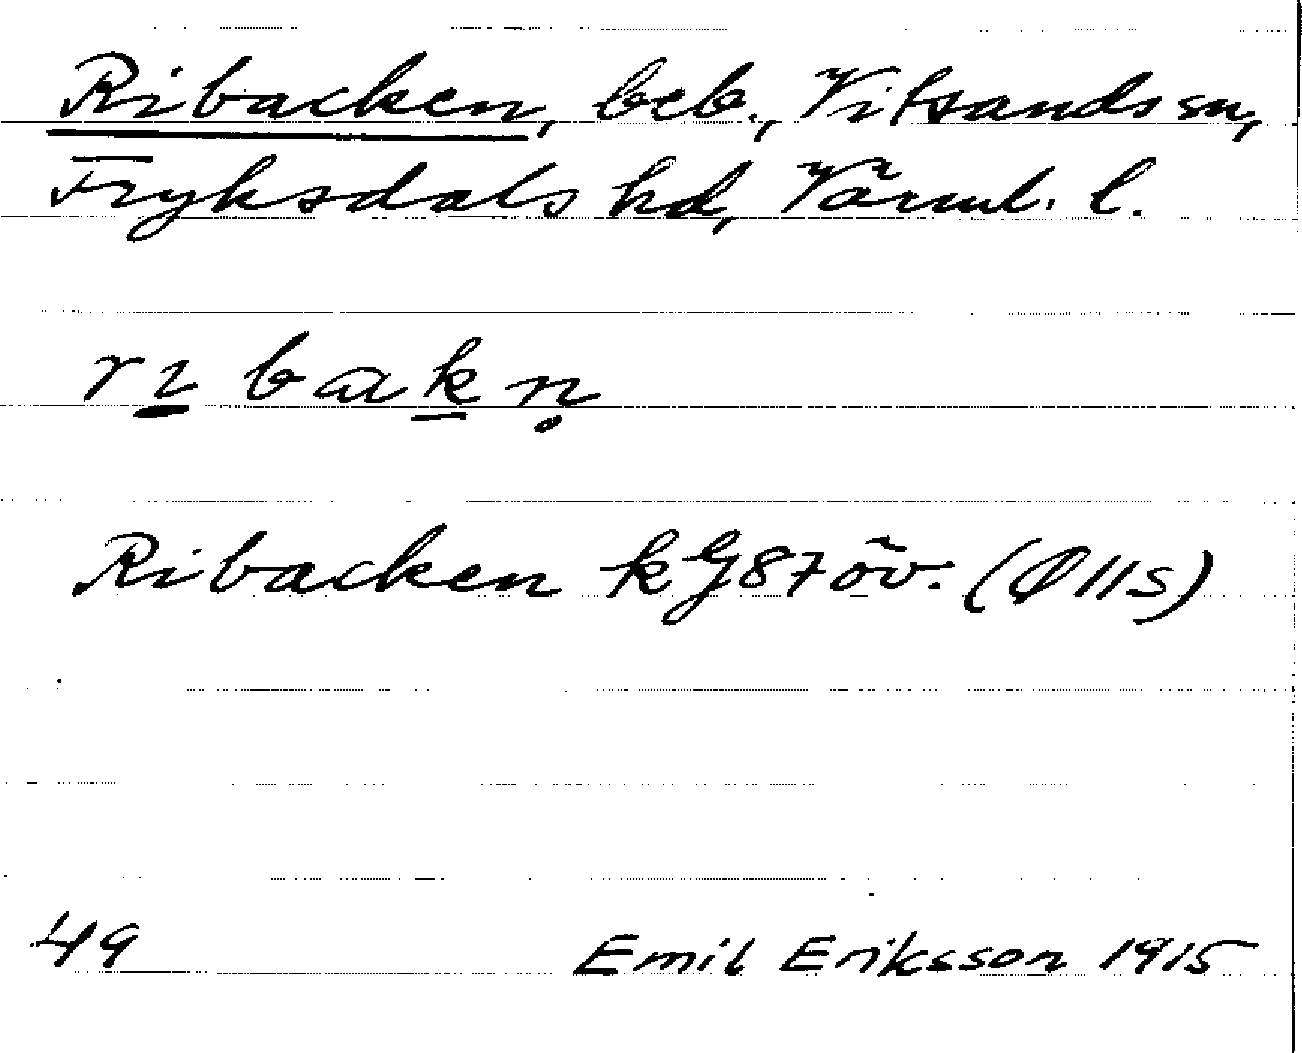 Ribacken, beb., Vitsands sn,
Fryksdals hd, Värml. l.
rɩ bakn̥
Ribacken kG87öv. (Ø11s)
49 Emil Eriksson 1915